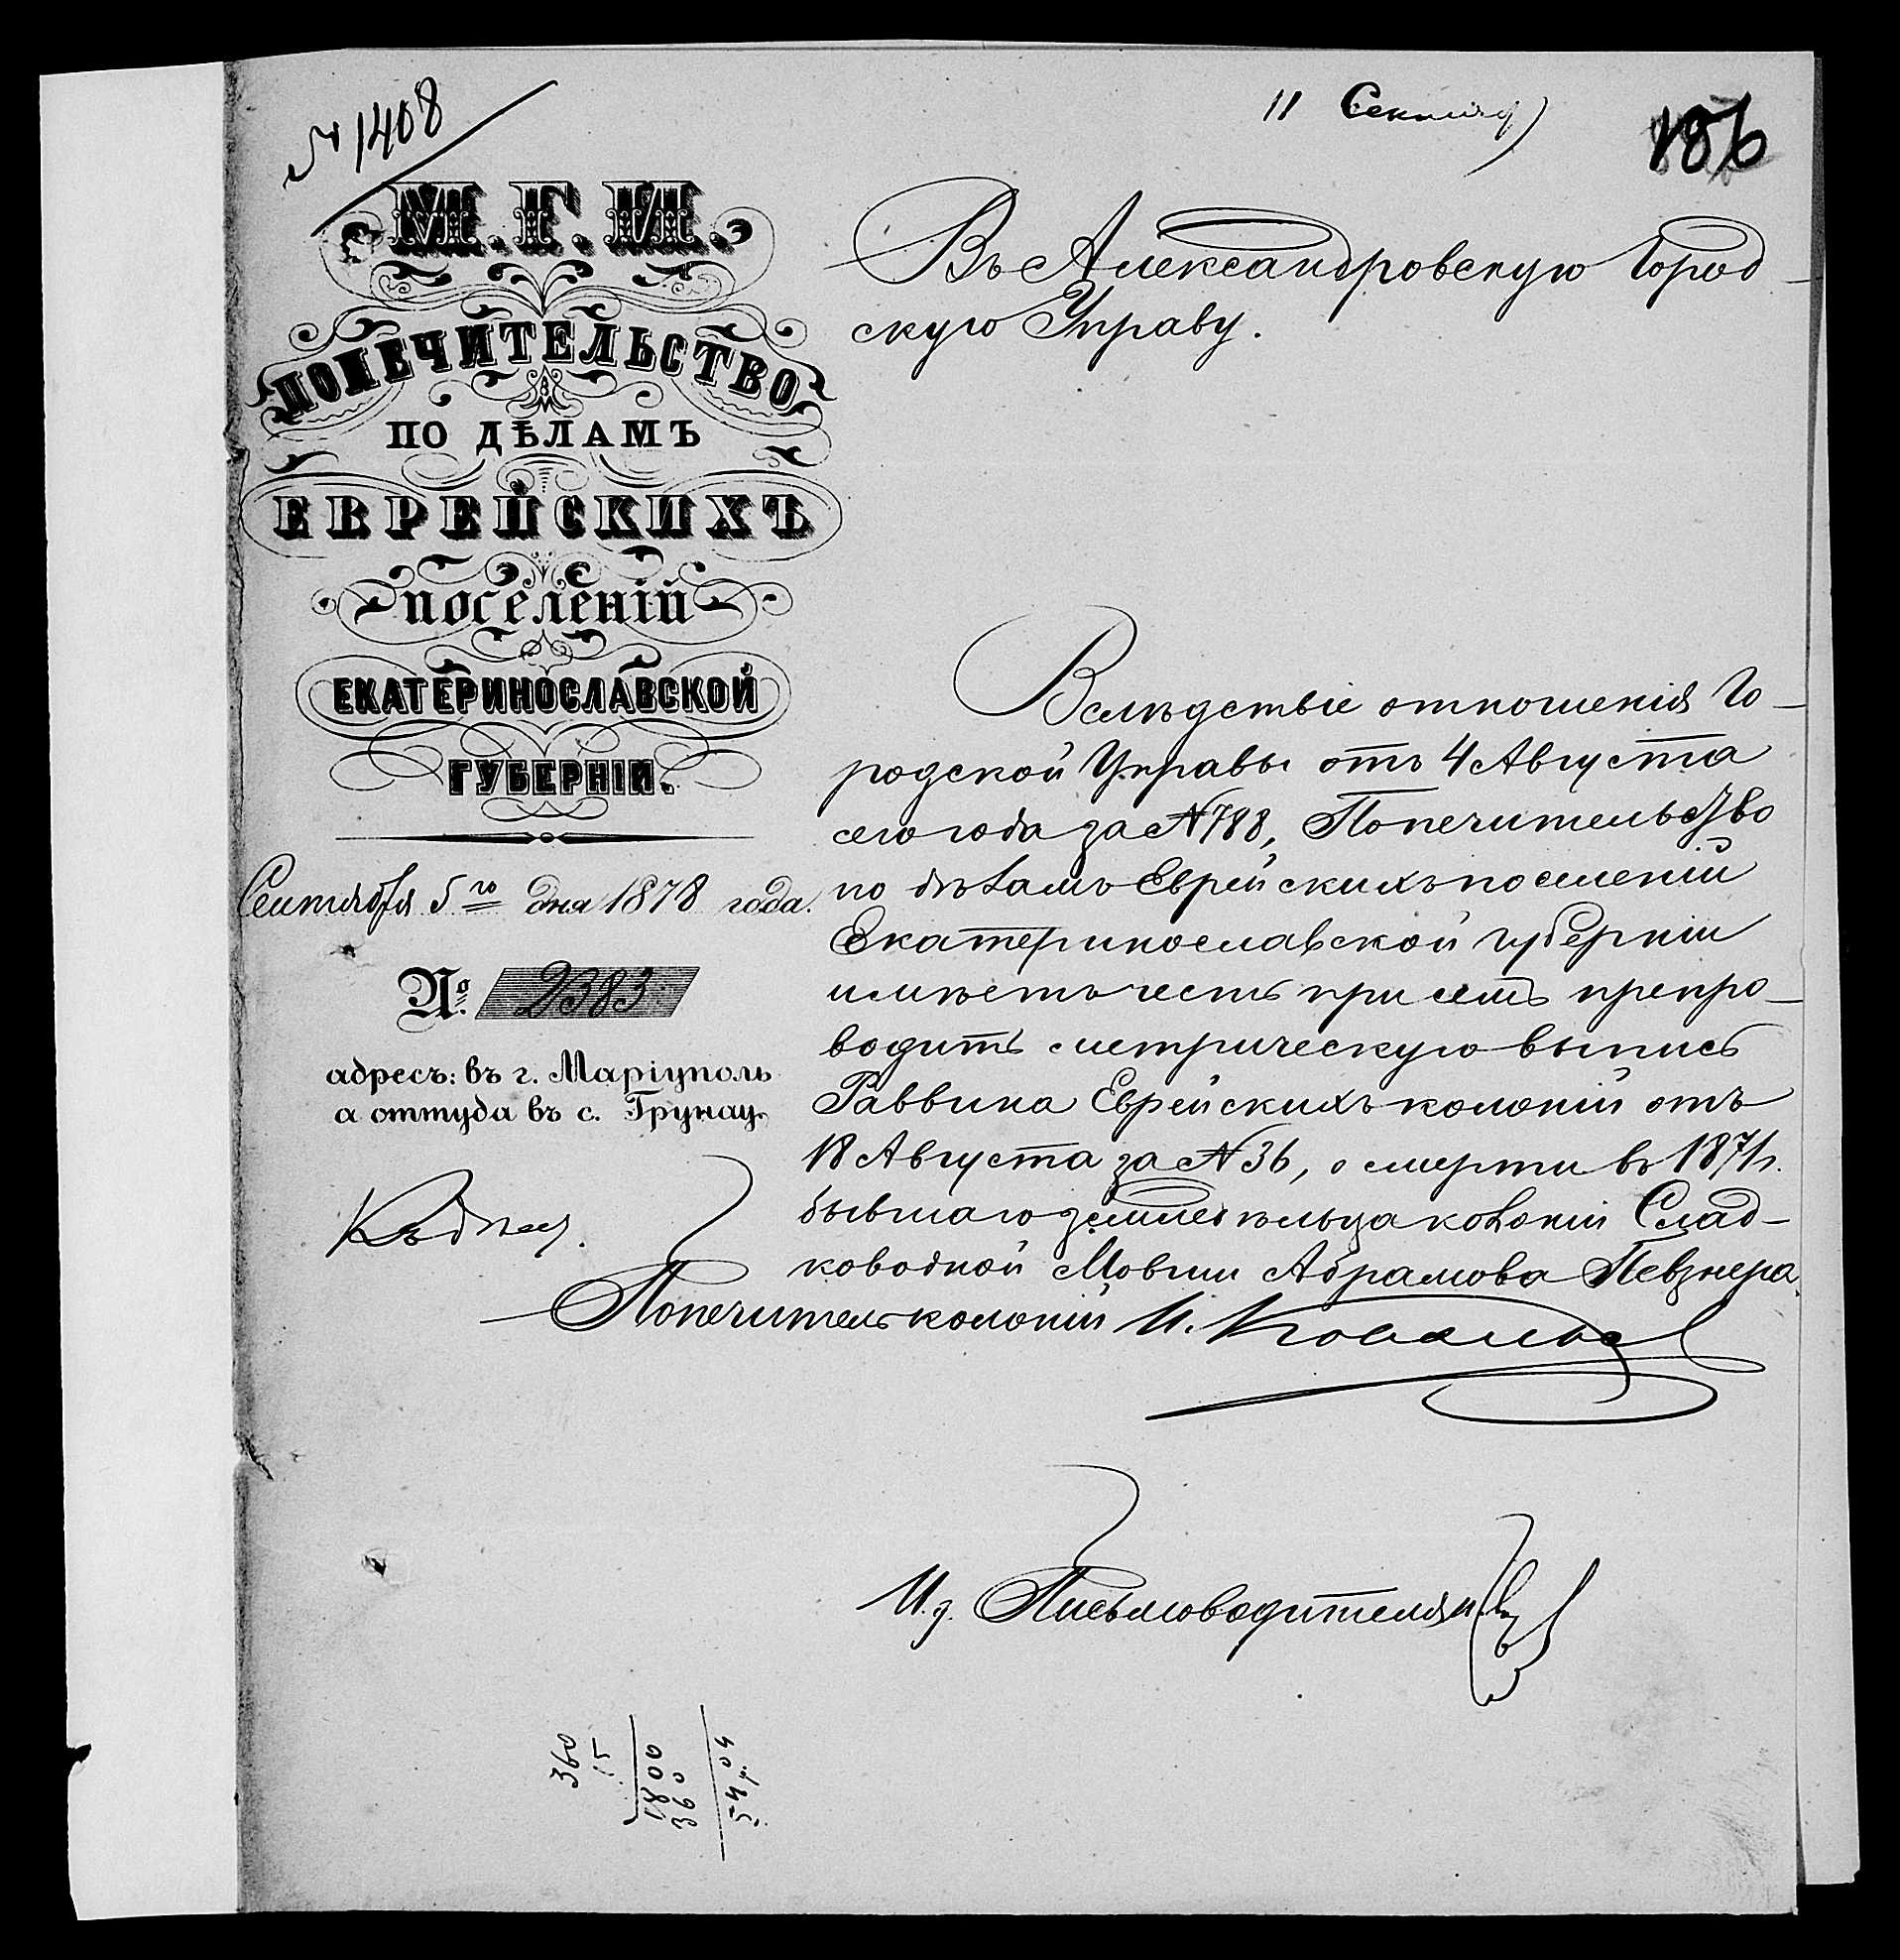 № 1408
11 Сентяб
186
М.Г.И.
ПОПЕЧИТЕЛЬСТВО
ПО ДѢЛАМЪ
ЕВРЕЙСКИХЪ
поселеній
ЕКАТЕРИНОСЛАВСКОЙ
ГУБЕРНІИ.
Сентября 5го дня 1878 года.
№ 2383
адресъ: въ г. Маріуполь
а оттуда въ с. Грунау.
Къ дѣлу.
Въ Александровскую Город-
скую Управу.
Вслѣдствіе отношенія Го-
родской Управы отъ 4 Августа
сего года за № 788, Попечительство
по дѣламъ Еврейскихъ поселеній
Екатеринославской губерніи
имѣетъ честь при семъ препро-
водить метрическую выпись
Раввина Еврейскихъ колоній отъ
18 Августа за № 36, о смерти въ 1871 г.
бывшаго земледѣльца колоніи Слад-
ководной Мовши Абрамова Певзнера.
Попечитель колоній И.
И. д. Письмоводителя
360
15
1800
360
54 р. 04